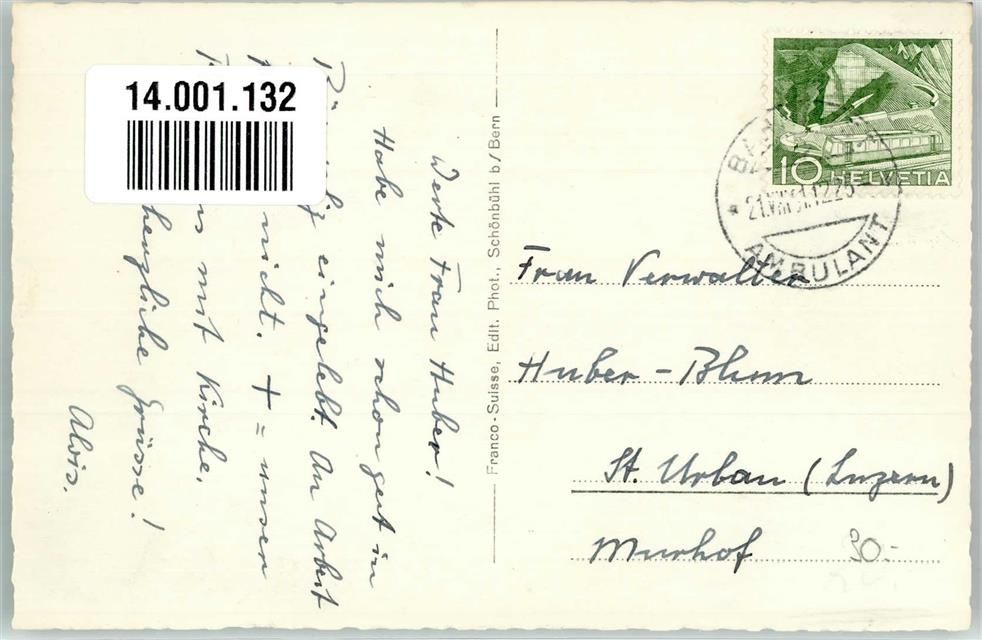 14.001.132
Werte Frau Huber!
Habe mich schon gut in
eingelebt. An Arbeit
nicht. + = unser
mit Kirche.
herzliche Grüsse!
Alois.
Franco-Suisse, Edit. Phot., Schönbühl b/Bern
10 HELVETIA
AMBULANT
Frau Verwalter
Huber-Blum
St. Urban (Luzern)
Murhof
30.-